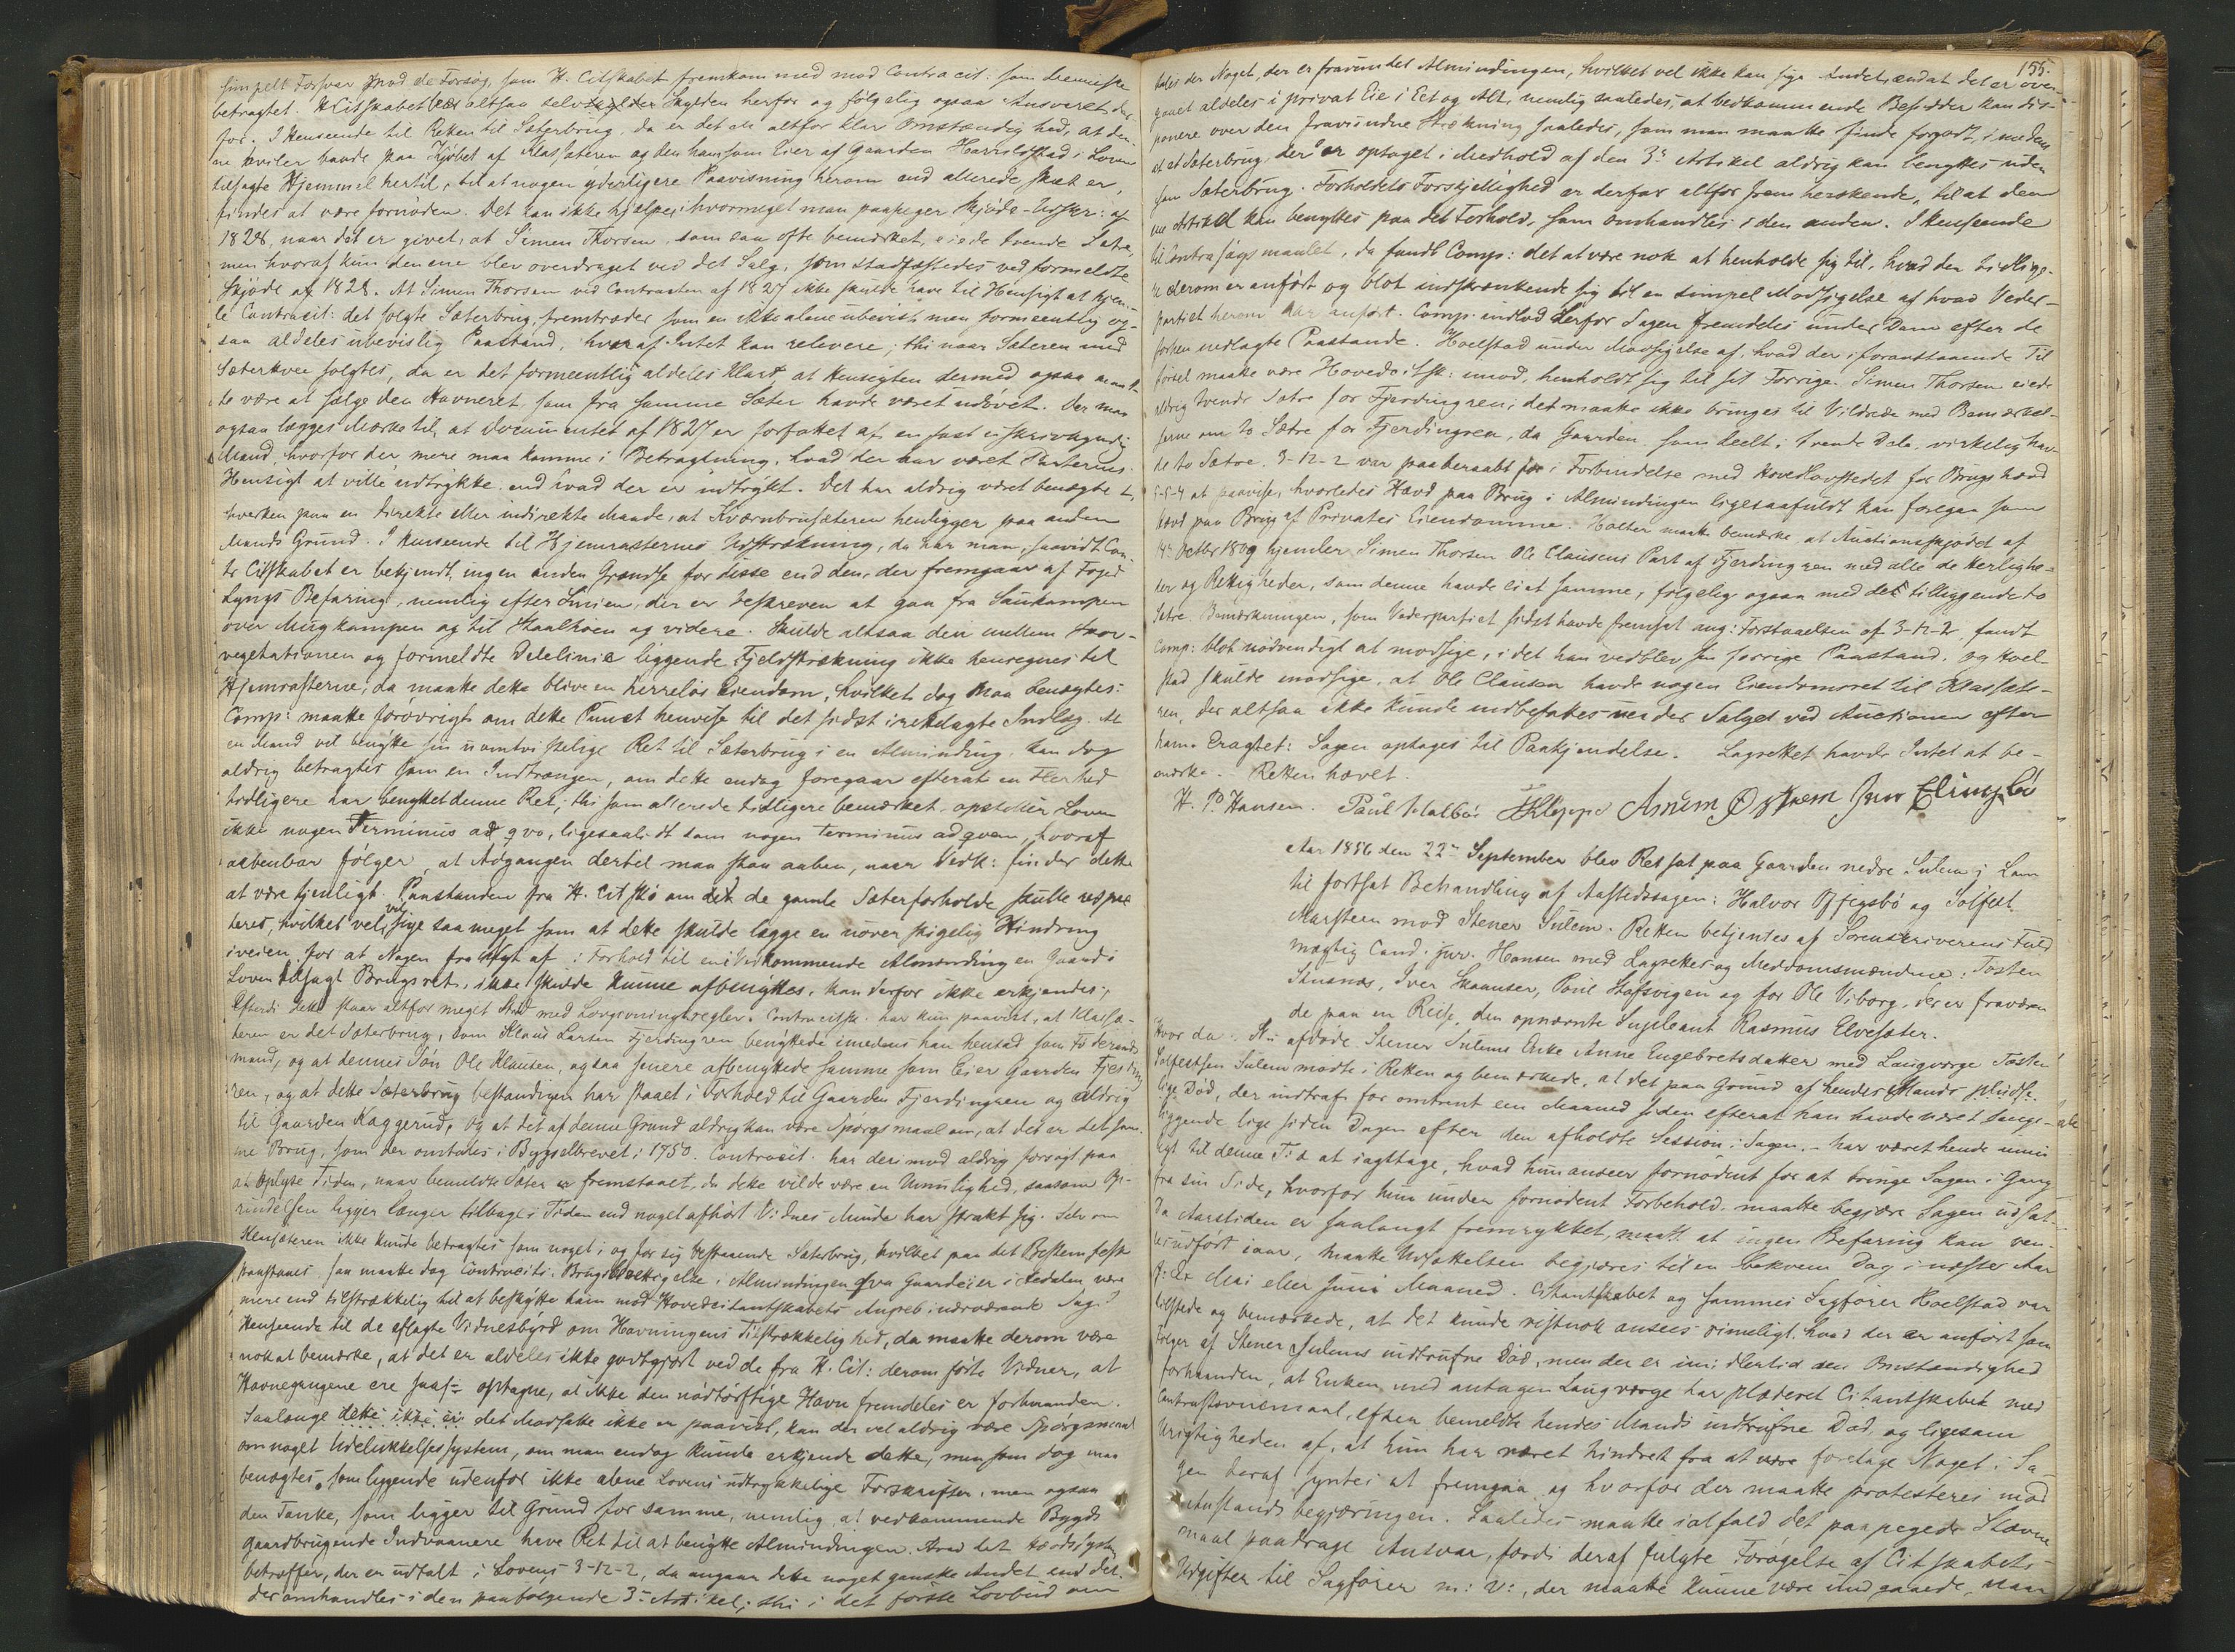 simpelt Forsvar mod de Forsøg, som H. Citskabet fremkom med mod Contracit: som
betragtet. H Citskabet bær altsaa selv Skylden herfor og følgelig ogsaa Ansvaret der-
for. I Henseende til Retten til Sæterbrug, da er det en altfor klar Omstændighed, at den-
ne hviler baade paa Kjøbet af Klassæteren og den ham som Eier af Gaarden Harildstad i Loven
tilsagte Hjemmel hertil, til at nogen yderligere Paavisning herom end allerede skeet er,
findes at være fornøden. Det kan ikke hjælpe, hvormeget man paapeger Skjøde-Udskr: af
1828, naar det er givet, at Simen Thorsen, som saa ofte bemærket, eiede tvende Sætre,
men hvoraf kun den ene blev overdraget ved det Salg, som stadfæstedes ved formeldte
Skjøde af 1828. At Simen Thorsen ved Contracten af 1827 ikke skulde have til Hensigt at hjem-
le Contracit: det solgte Sæterbrug, fremtræder som en ikke alene ubevist men formeentlig og-
saa aldeles ubevislig Paastand, hvoraf Intet kan relevere; thi naar Sæteren med
Sæterkvee solgtes, da er det formeentlig aldeles klart, at Hensigten dermed ogsaa maat-
te være at sælge den Havneret, som fra samme Sæter havde været udøvet. Der maa
ogsaa lægges Mærke til, at Documentet af 1827 er forfattet af en fast uskrivkyndig
Mand, hvorfor der mere maa komme i Betragtning, hvad der har været Parternes
Hensigt at ville udtrykke end hvad der er udtrykt. Det har aldrig været benægtet,
hverken paa en direkte eller indirekte Maade, at Kværnbrusæteren henligger paa anden
Mands Grund. I Henseende til Hjemrasternes Udstrækning, da har man, saavidt Con-
tr Citskabet er bekjendt, ingen anden Grændse for disse end den, der fremgaar af Foged
Lyngs Befaring, nemlig efter Linien, der er beskreven at gaa fra Saukampen
over Mugkampen og til Staalhøen og videre. Skulde altsaa den mellem Skov-
vegetationen og formeldte Delelinie liggende Fjeldstrækning ikke henregnes til
Hjemrasterne, da maatte dette blive en herreløs Eiendom, hvilket dog maa benægtes.
Comp: maatte forøvrigt om dette Punct henvise til det sidst irettelagte Indlæg. At
en Mand vil benytte sin uomtvistelige Ret til Sæterbrug i en Alminding, kan dog
aldrig betragtes som en Indtrængen, om dette endog foregaar efterat en Flerhed
tidligere har benyttet denne Ret; thi som allerede tidligere bemærket, opstiller Loven
ikke nogen Terminus a quo, ligesaalidt som nogen terminus ad quem, hvoraf
aabenbar følger, at Adgangen dertil maa staa aaben, naar Vedk: finder dette
at være tjenligt. Paastanden fra H. Citsk: om at de gamle Sæterforholde skulle respec-
teres, hvilket vel vil sige saa meget som at dette skulde lægge en uoverstigelig Hindring
iveien for at Nogen fra Nyt af i Forhold til en i Vedkommende Almending en Gaard i
Loven tilsagt Brugsret, ikke skulde kunne afbenyttes, kan derfor ikke erkjendes,
efterdi dette staar altfor meget Strid med Lovgivningsregler. Contracitsk. har kun paavist, at Klassæ-
teren er det Sæterbrug, som Klaus Larsen Fjerdingren benyttede imedens han hensad som Føderaads-
mand, og at dennes Søn Ole Klausen, ogsaa senere afbenyttede samme som Eier Gaarden Fjerding-
ren, og at dette Sæterbrug bestandigen har staaet i Forhold til Gaarden Fjerdingren og aldrig
til Gaarden Kaggerud, og at det af denne Grund aldrig kan være Spørgsmaal om, at det er det sam-
me Brug, som der omtales i Bygselbrevet i 1750. Contracit. har derimod aldrig forsøgt paa
at oplyse Tiden, naar bemeldte Sæter er fremstaaet, da dette vilde være en Umulighed, saasom Op-
rindelsen ligger længer tilbage i Tiden end noget afhørt Vidnes Minde har strakt sig. Selv om
Klassæteren ikke kunde betragtes som noget i og for sig bestaaende Sæterbrug, hvilket paa det Bestemteste
paastaaes saa maatte dog Contracits: Brugsberettigelse i Almindingen fra Gaardeier i Hedalen være
mere end tilstrækkelig til at beskytte ham mod Hovedcitantskabets Angreb i nærværende Sag. I
Henseende til de aflagte Vidnesbyrd om Havningens Tilstrækkelighed, da maatte derom være
nok at bemærke, at det er aldeles ikke godtgjort ved de fra H. Cit: derom førte Vidner, at
Havnegangene ere saaf: optagne, at ikke den nødtørftige Havn fremdeles er forhaanden.
Saalænge dette ikke er det Modsatte ikke er paavist, kan der vel aldrig være Spørgsmaal
om noget Udelukkelsessystem, om man endog kunde erkjende dette, men som dog maa
benægtes, som liggende udenfor ikke alene Lovens udtrykkelige Forskrifter, men ogsaa
den Tanke, som ligger til Grund for samme, nemlig at vedkommende Bygds
gaardbrugende Indvaanere have Ret til at benytte Almindingen. Hvad det
betræffer, der er udtalt i Lovens 3-12-2, da angaar dette noget ganske Andet end det,
der omhandles i den paafølgende 3die Artikel; thi i det første Lovbud om-
155.
tales der Noget, der er fravundet Almindingen, hvilket vel ikke kan sige Andet, end at det er over-
gaaet aldeles i privat Eie i Eet og Alt, nemlig saaledes, at vedkommende Besidder kan dis-
ponere over den fravundne Strækning saaledes, som man maatte finde forgodt, i meden
at et Sæterbrug, der er optaget i Medhold af den 3die Artikel aldrig kan benyttes uden
som Sæterbrug. Forholdets Forskjellighed er derfor altfor fremherskende, til at den
ene Artikel kan benyttes paa det Forhold, som omhandles i den anden. I Henseende
til Contrasøgsmaalet, da fandt Comp: det at være nok at henholde sig til, hvad der tidlige-
re derom er anført og blot indskrænkende sig til en simpel Modsigelse af hvad Veder-
partiet herom har anført. Comp. indlod derfor Sagen fremdeles under Dom efter de
forhen nedlagte Paastande. Hoelstad under Modsigelse af, hvad der i foranstaaende Til-
førsel maatte være Hovedcitsk: imod, henholdt sig til sit Forrige. Simen Thorsen eiede
aldrig tvende Sætre for Fjerdingren; det maatte ikke bringes til Vildrede med Bemærkel-
serne om to Sætre for Fjerdingren, da Gaarden, som heelt i tvende Dele, virkelig hav-
de to Sætre. 3-12-2 var paaberaabt for i Forbindelse med Hovedlovstedet for Brugshævd
5-5-4 at paavise, hvorledes Hævd paa Brug i Almindingen ligesaafuldt kan foregaa som
Hævd paa Brug af Privates Eiendomme. Holter maatte bemærke, at Auctionsskjødet af
14de Octbr 1809 hjemler Simen Thorsen Ole Clausens Part af Fjerdingren med alle de Herlighe-
der og Rettigheder, som denne havde eiet samme, følgelig ogsaa med det tilliggende to
Sætre. Bemærkningen, som Vederpartiet sidst havde fremsat ang: Forstaaelsen af 3-12-2, fandt
Comp: blot nødvendigt at modsige, i det han vedblev sin forrige Paastand. og Hoel-
stad skulde modsige, at Ole Clausen havde nogen Eiendomsret til Klassæte-
ren, der altsaa ikke kunde indbefattes under Salget ved Auctionen efter
ham. Eragtet: Sagen optages til Paakjendelse. Lagrettet havde Intet at be-
mærke. Retten hævet.
H. P. Hansen. Paul Valbø Kloppe Amum Øygaem Iver Elingsbø
Aar 1856 den 22de September blev Ret sat paa Gaarden nedre Sulem i Lom
til fortsat Behandling af Aastedssagen: Halvor Offigsbø og Solfest
Marsteen mod Stener Sulem. Retten betjentes af Sorenskriverens Fuld
mægtig Cand. jur. Hansen med Lagrettes- og Meddomsmændene: Tosten
Stusnæs, Iver Skaanser, Poul Stafsvigen og for Ole Viborg, der er fraværen
de paa en Reise, den opnævnte Supleant Rasmus Elvesæter.
Hvor da afdøde Stener Sulems Enke Anne Engebretsdatter med Laugværge Tosten
Solfestsen Sulem mødte i Retten og bemærkede, at det paa Grund af hendes Mands pludse-
lige Død, der indtraf for omtrent een Maaned siden efterat han havde været senge-
liggende lige siden Dagen efter den afholdte Session i Sagen, - har været hende umu-
ligt til denne Tid at iagttage, hvad hun anseer fornødent for at bringe Sagen i Gang
fra sin Side, hvorfor hun under fornødent Forbehold maatte begjære Sagen udsat.
Da Aarstiden er saalangt fremrykket, at ingen Befaring kan ven-
tes indført iaar, maatte Udsættelsen begjæres til en bekvem Dag i næste Aar
f: Ex Mai eller Juni Maaned. Citantskabet og sammes Sagfører Hoelstad var
tilstede og bemærkede, at det kunde vistnok ansees rimeligt, hvad der er anført som
Følger af Stener Sulems indtrufne Død, men der er imidlertid den Omstændighed
forhaanden, at Enken med antagen Laugværge har plæderet Citantskabet med
Contrastævnemaal, efter bemeldte hendes Mands indtrufne Død, og ligesom
Urigtigheden af, at hun har været hindret fra at være foretage Noget i Sa-
gen deraf syntes at fremgaa og hvorfor der maatte protesteres mod
Anstandsbegjæringen. Saaledes maatte ialfald det paapegede Stævne
maal paadrage Ansvar, fordi deraf fulgte Forøgelse af Citskabets
Udgifter til Sagfører m: v:, der maatte kunne være undgaaede, naar